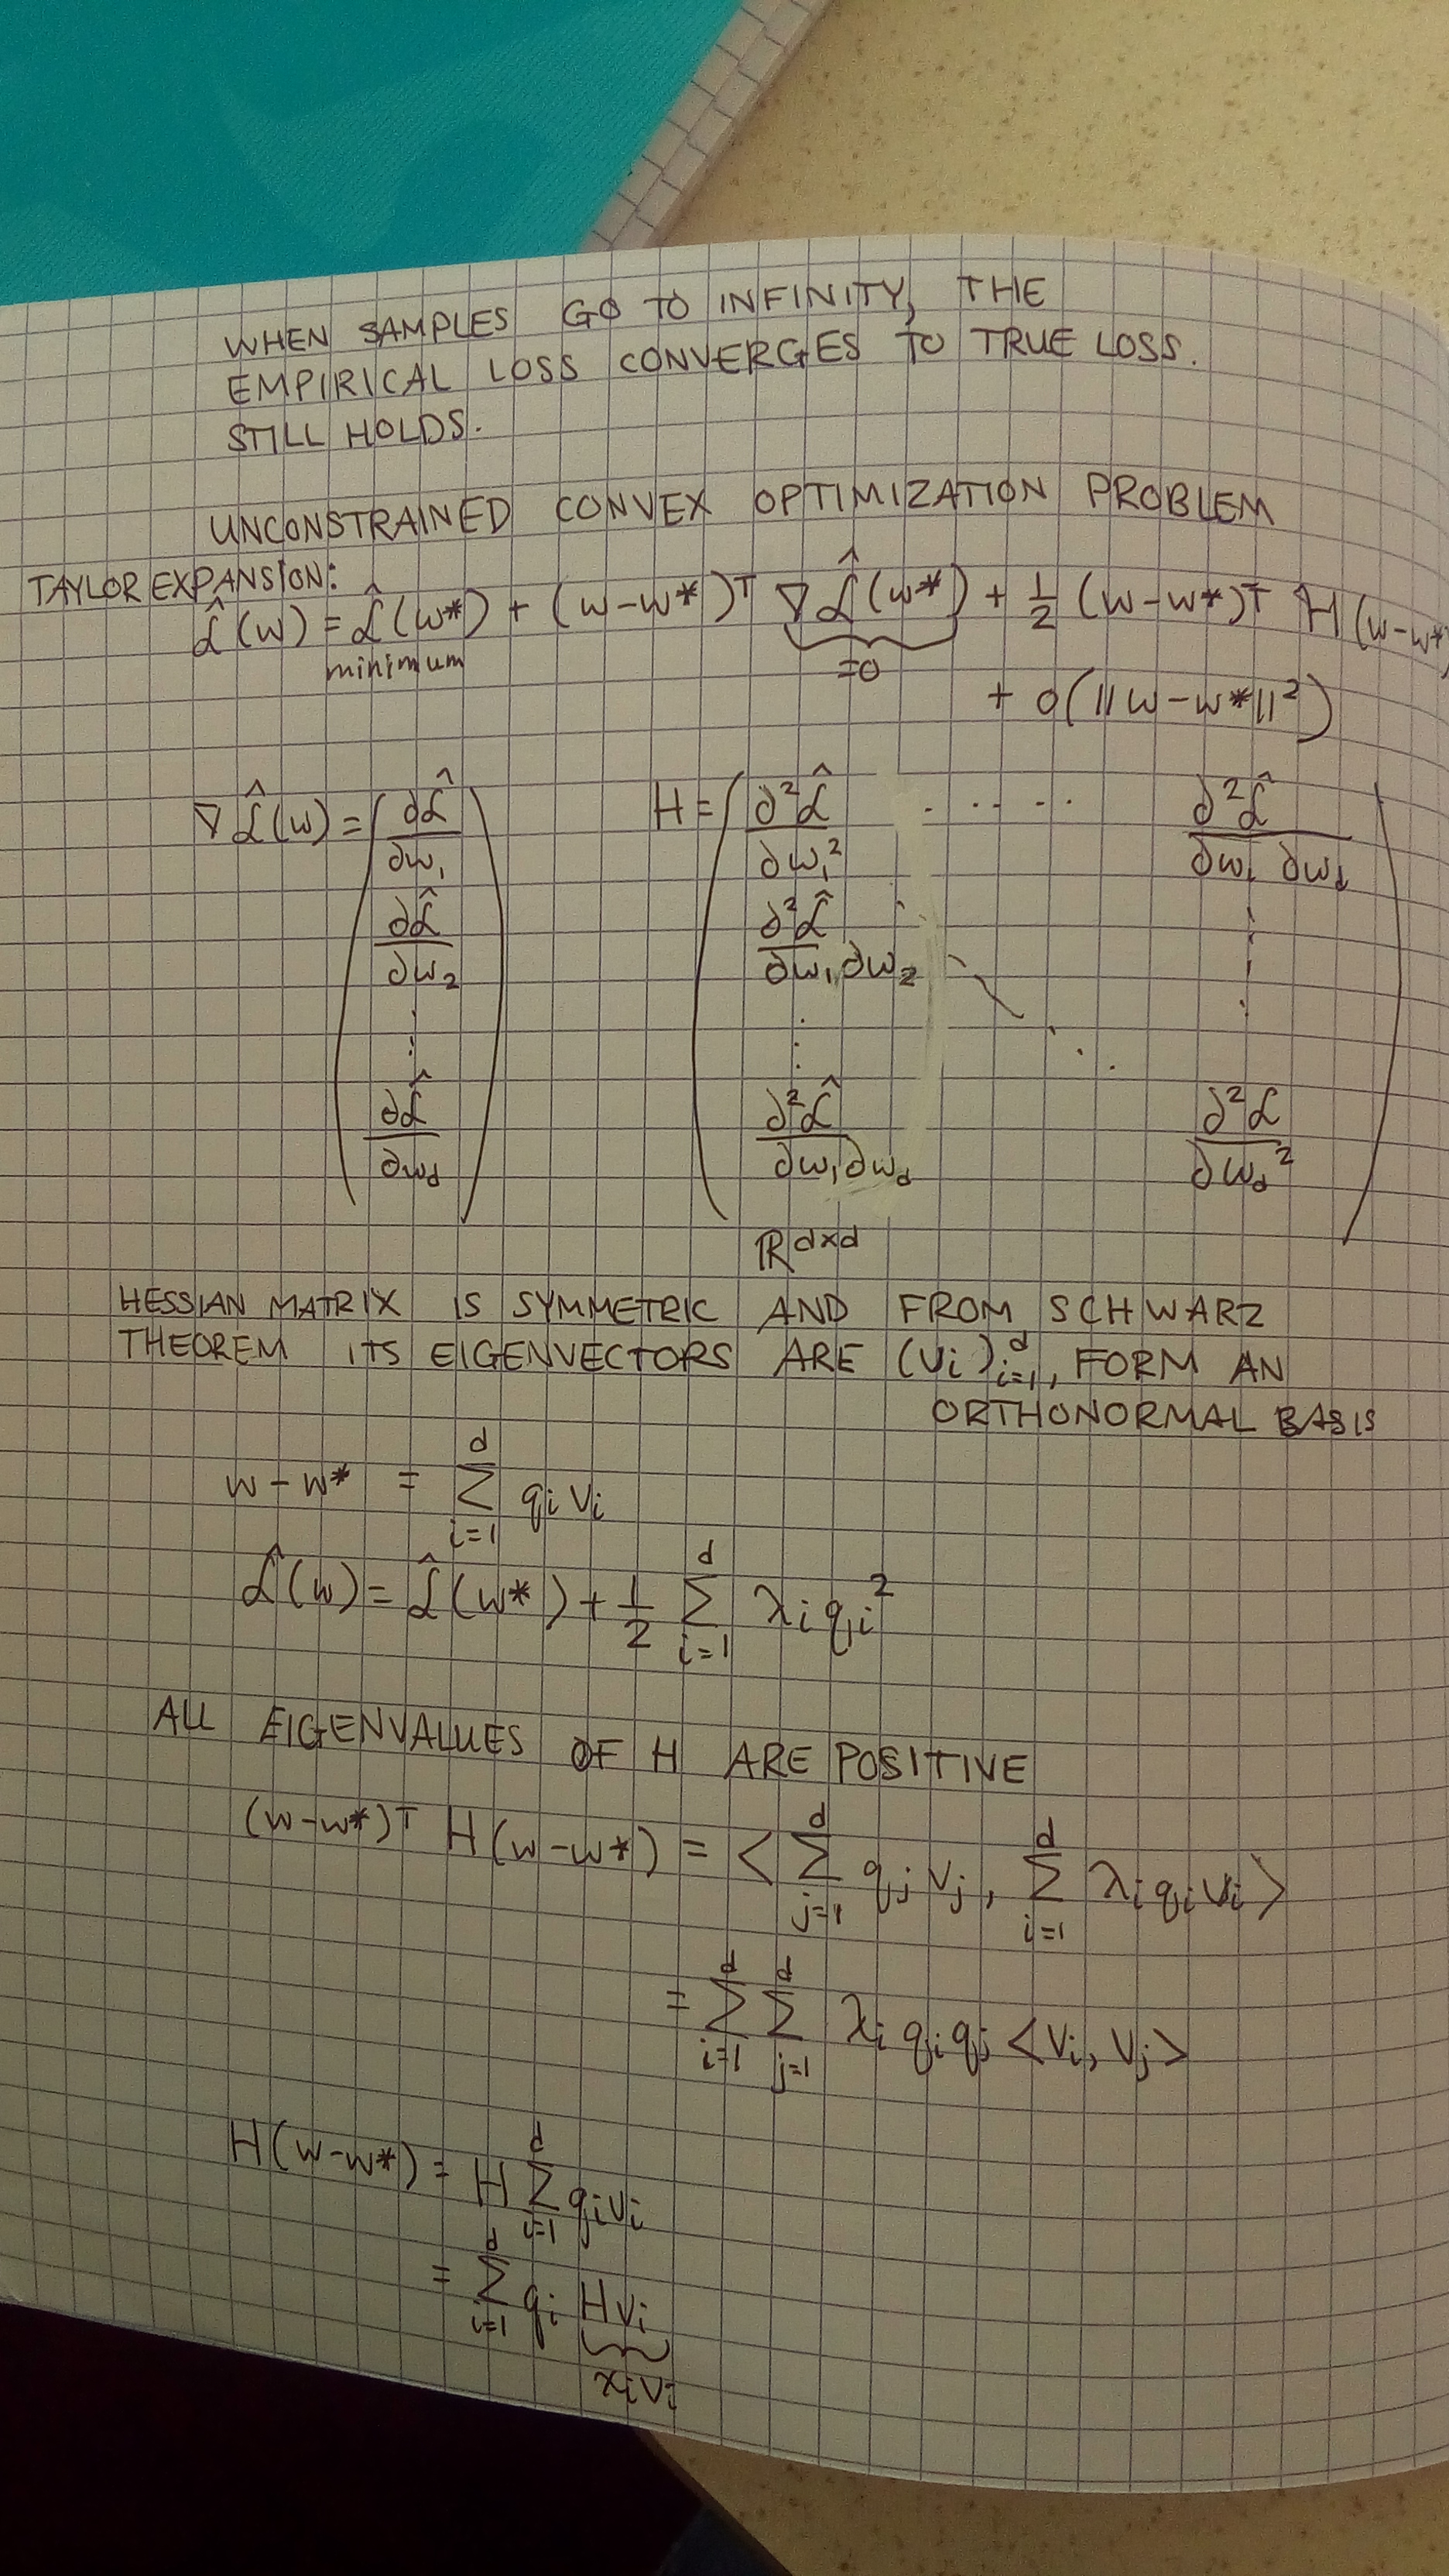 WHEN SAMPLES GO TO INFINITY, THE
EMPIRICAL LOSS CONVERGES TO TRUE LOSS.
STILL HOLDS.
UNCONSTRAINED CONVEX OPTIMIZATION PROBLEM
TAYLOR EXPANSION:
ℒ̂(w) = ℒ̂(w*) + (w-w*)ᵀ ∇ℒ̂(w*) + 1/2 (w-w*)ᵀ H (w-w*)
minimum =0
+ o(||w-w*||²)
∇ℒ̂(w) = ( ∂ℒ̂/∂w₁ H = ( ∂²ℒ̂/∂w₁² ..... ∂²ℒ̂/∂w₁ ∂w_d
∂ℒ̂/∂w₂ ∂²ℒ̂/∂w₁∂w₂
⋮ ⋮ ⋱ ⋮
∂ℒ̂/∂w_d ) ∂²ℒ̂/∂w₁∂w_d ∂²ℒ/∂w_d² )
ℝ^(d×d)
HESSIAN MATRIX IS SYMMETRIC AND FROM SCHWARZ
THEOREM ITS EIGENVECTORS ARE (vᵢ)ᵢ₌₁ᵈ, FORM AN
ORTHONORMAL BASIS
w-w* = Σᵢ₌₁ᵈ qᵢ vᵢ
ℒ̂(w) = ℒ̂(w*) + 1/2 Σᵢ₌₁ᵈ λᵢ qᵢ²
ALL EIGENVALUES OF H ARE POSITIVE
(w-w*)ᵀ H(w-w*) = < Σⱼ₌₁ᵈ qⱼ vⱼ, Σᵢ₌₁ᵈ λᵢ qᵢ vᵢ >
= Σᵢ₌₁ᵈ Σⱼ₌₁ᵈ λᵢ qᵢ qⱼ <vᵢ, vⱼ>
H(w-w*) = H Σᵢ₌₁ᵈ qᵢvᵢ
= Σᵢ₌₁ᵈ qᵢ Hvᵢ
λᵢvᵢ